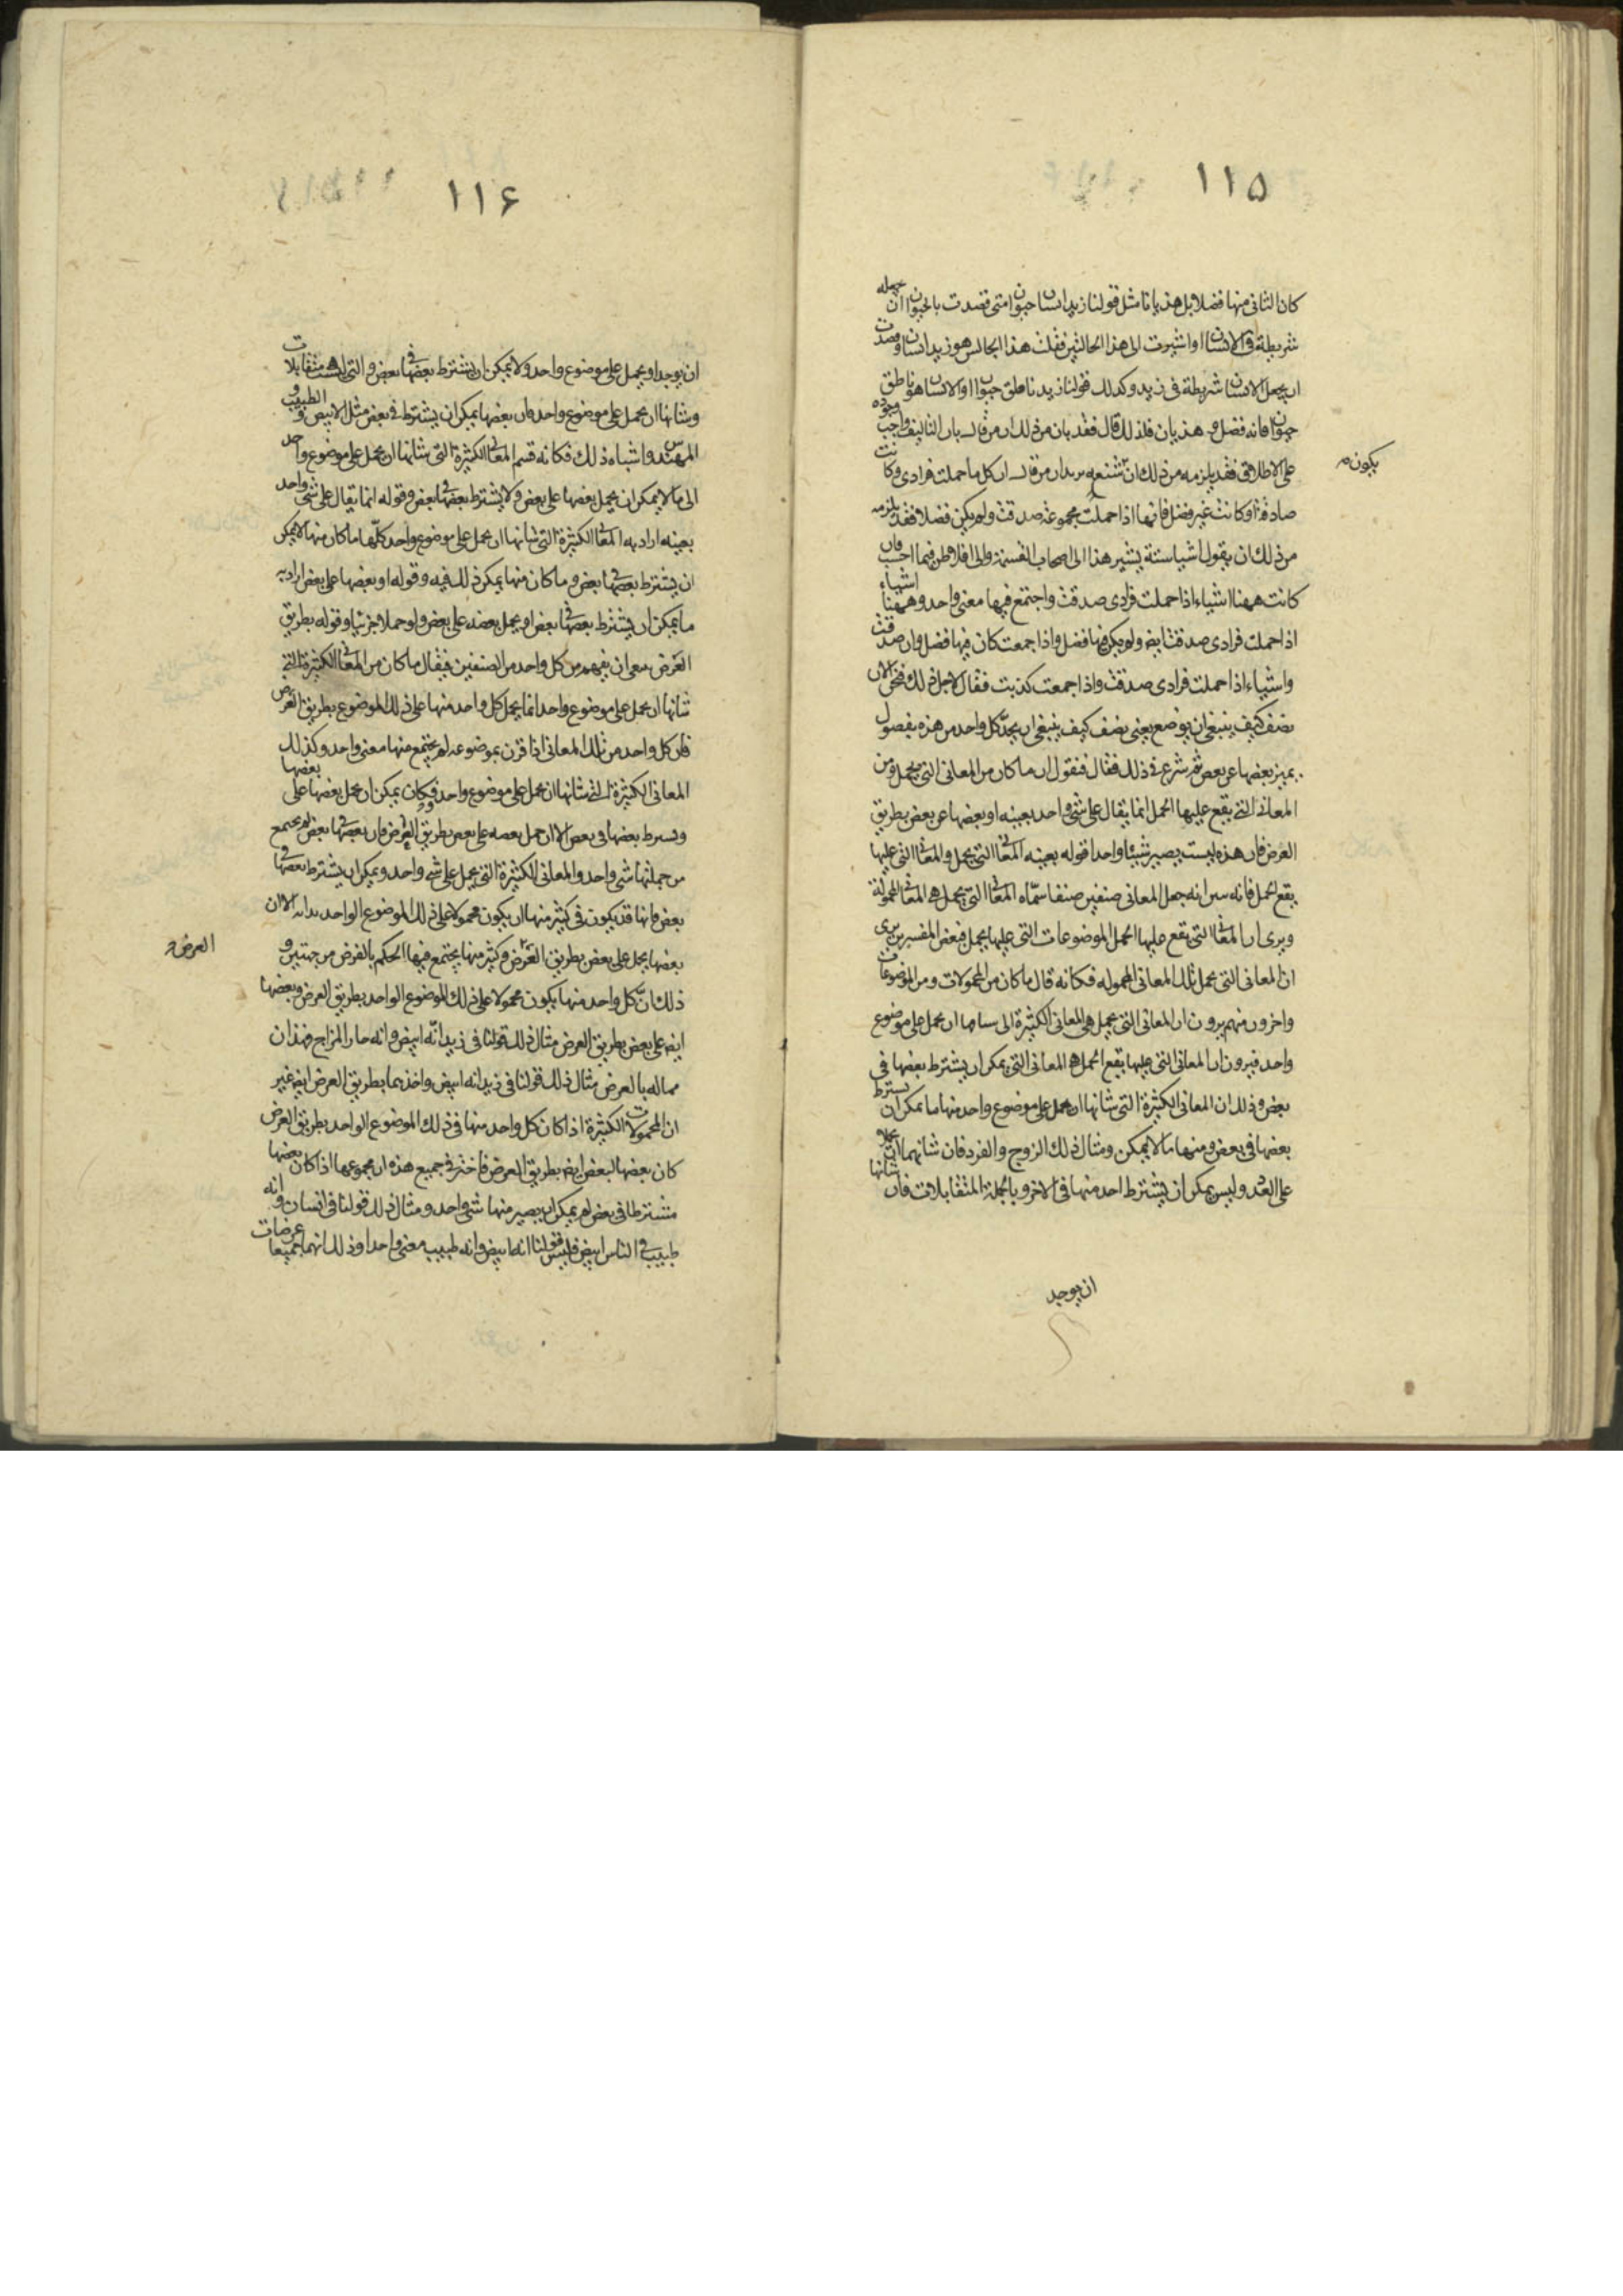 ١١٥
كان الثانى منها فضلا بل هذيانا مثل قولنا زيد انسان حيوان متى قصدت بالحيوان ان تجعله
شريطة فى الانسان او اشيرت الى هذا الجالس فقلت هذا الجالس هو زيد انسان وقصدت
ان يجعل الانسان شريطة فى زيد وكذلك قولنا زيد ناطق حيوان او الانسان هو ناطق
حيوان فانه فضل وهذيان فلذلك قال فقد بان من ذلك ان من قال بان التاليف واجب وجوده
على الاطلاق فقد يلزمه من ذلك ان شنعه يريد ان من قال ان كل ما حملت فرادى وكانت
يكون
صادقة او كانت غير فضل فانها اذا حملت مجموعة صدقت ولم يكن فضلا فقد يلزمه
من ذلك ان يقول اشيا ستة يشير هذا الى اصحاب القسمة والى افلاطن فيما احسب فان
كانت ههنا اشياء اذا حملت فرادى صدقت واجتمع فيها معنى واحد وههنا اشياء
اذا حملت فرادى صدقت ايضا ولم يكن فيها فضل واذا جمعت كان فيها فضل وان صدقت
واشياء اذا حملت فرادى صدقت واذا جمعت كذبت فقال لاجل ذلك فنحن الان
نصف كيف ينبغى ان يوضع يعنى نصف كيف ينبغى ان يحد كل واحد من هذه بفصول
يميز بعضها عن بعض ثم شرع فى ذلك فقال فنقول ان ما كان من المعانى التى تحمل ومن
المعانى التى يقع عليها الحمل انما يقال على شىء واحد بعينه او بعضها عن بعض بطريق
العرض فان هذه ليست يصير شيئا واحدا قوله بعينه المعانى التى تحمل والمعانى التى عليها
يقع الحمل فانه جعل المعانى صنفين صنفا سماه المعانى التى تحمل هى المعانى المحمولة
ويرى ان المعانى التى يقع عليها الحمل الموضوعات التى عليها يحمل فبعض المفسرين يرى
ان المعانى التى تحمل تلك المعانى المحموله فكانه قال ما كان من المحمولات ومن الموضوعات
واخرون منهم يرون ان المعانى التى تحمل هى المعانى الكثيرة التى شانها ان تحمل على موضوع
واحد فيرون ان المعانى التى عليها يقع الحمل هى المعانى التى يمكن ان يشترط بعضها فى
بعض وذلك ان المعانى الكثيرة التى شانها ان تحمل على موضوع واحد منها ما يمكن ان يشترط
بعضها فى بعض ومنها ما لا يمكن ومثال ذلك الزوج والفرد فان شانهما ان يحملا
على العدد وليس يمكن ان يشترط احد منها فى الاخر وبالجملة المتقابلات فان شانها
ان يوجد
١١۶
ان يوجد او يحمل على موضوع واحد ولا يمكن ان يشترط بعضها فى بعض والتى ليست متقابلات
وشانها ان تحمل على موضوع واحد فان بعضها يمكن ان يشترط فى بعض مثل الابيض والطبيب و
المهندس واشباه ذلك فكانه قسم المعانى الكثيرة التى شانها ان تحمل على موضوع واحد
الى ما لا يمكن ان يحمل بعضها على بعض ولا يشترط بعضها فى بعض وقوله انما يقال على شىء واحد
بعينه اراد به المعانى الكثيرة التى شانها ان تحمل على موضوع واحد كلها ما كان منها لا يمكن
ان يشترط بعضها فى بعض وما كان منها يمكن ذلك فيه وقوله او بعضها على بعض اراد به
ما يمكن ان يشترط بعضها فى بعض او يحمل بعضه على بعض ولو حملا جزئيا وقوله بطريق
العرض ان يفهم من كل واحد من الصنفين فيقال ما كان من المعانى الكثيرة التى
شانها ان تحمل على موضوع واحد انما يحمل كل واحد منها على ذلك الموضوع بطريق العرض
فان كل واحد من تلك المعانى اذا قرن بموضوعه لم يجتمع منها معنى واحد وكذلك
المعانى الكثيرة التى شانها ان تحمل على موضوع واحد فكان يمكن ان يحمل بعضها على بعضها
ويشترط بعضها فى بعض الا ان حمل بعضه على بعض بطريق العرض فان بعضها فى بعض لم يجتمع
من جملتها شىء واحد والمعانى الكثيرة التى تحمل على شىء واحد ويمكن ان يشترط بعضها فى
بعض فانها قد يكون فى كثير منها ان يكون محمولا على ذلك الموضوع الواحد بذاته الا ان
العرض و
بعضها يحمل على بعض بطريق العرض وكثير منها يجتمع فيها الحكم بالعرض من جهتين و
ذلك ان كل واحد منها يكون محمولا على ذلك الموضوع الواحد بطريق العرض وبعضها
ايضا على بعض بطريق العرض مثال ذلك قولنا فى زيد انه ابيض وانه حار المزاج فهذان
بالعرض مثال ذلك قولنا فى زيد انه ابيض واخذهما بطريق العرض ايضا غير
ان المحمولات الكثيرة اذا كان كل واحد منها فى ذلك الموضوع الواحد بطريق العرض
كان بعضها لبعض ايضا بطريق العرض فاخذ فى جميع هذه ان مجموعها اذا كان بعضها
مشترطا فى بعض لم يمكن ان يصير منها شىء واحد ومثال ذلك قولنا فى انسان انه و
طبيب فى الناس ابيض فليس قولنا انه ابيض وانه طبيب معنى واحدا وذلك انهما جميعا عرضان